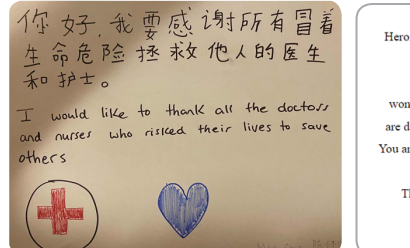 你好，我要感谢所有冒着
生命危险拯救他人的医生
和护士。
I would like to thank all the doctors
and nurses who risked their lives to save
others
Hero
won
are d
You ar
Th